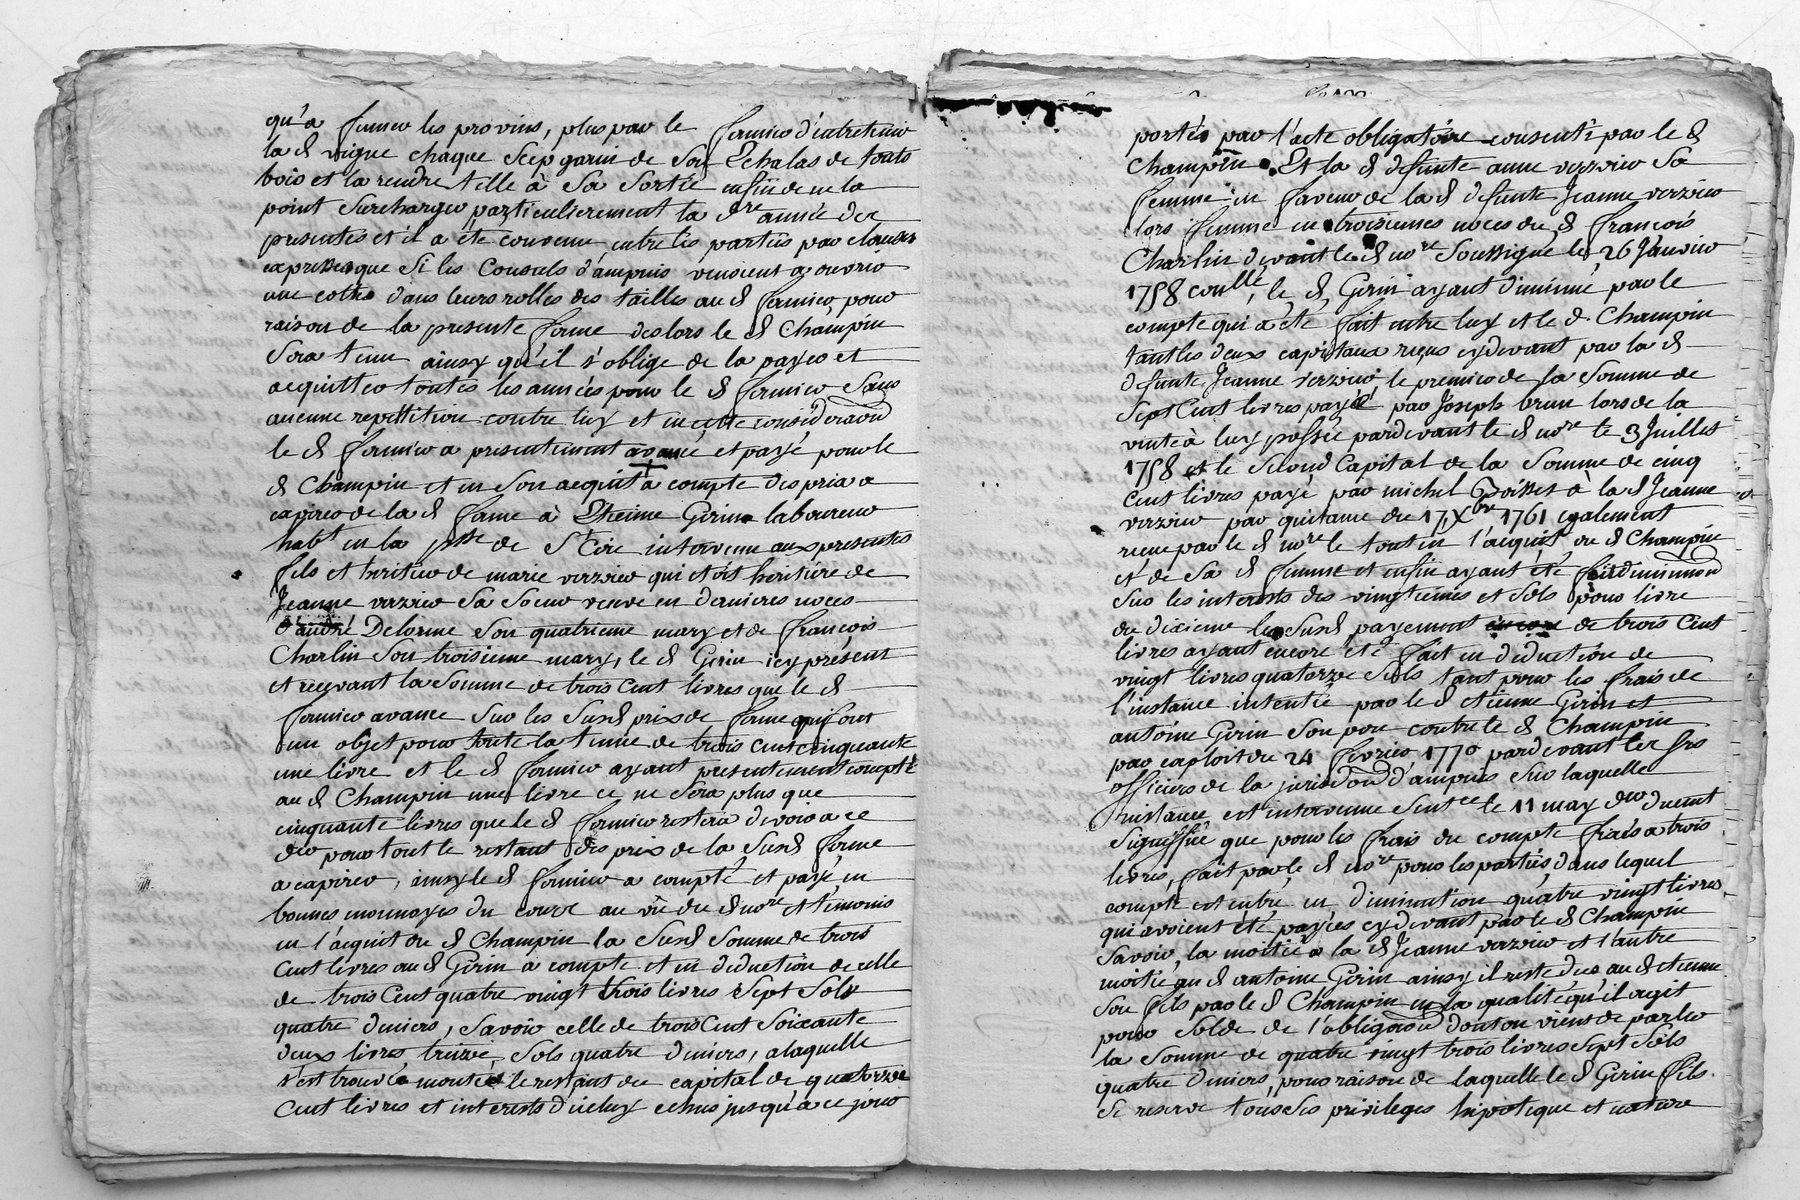 qu'a fumer les provins, plus par le fermier d'entretenir
la d vigne chaque Scep garni de Son Echalas de touts
bois et la rendre telle à Sa Sortie enfin de ne la
point Surcharger particulierement la dre année des
presentes et il a été convenu entre les parties par clauses
expresses que Si les Consuls d'ampuis venoient a ouvrir
une cotte dans leurs rolles des tailles au d fermier pour
raison de la presente ferme des lors le d Champin
Sera tenu ainsy qu'il s'oblige de la payer et
acquitter toutes les années pour le d fermier Sans
aucune repettition contre luy et en cette consideraon
le d fermier a presentement avancé et payé pour le
d Champin et en Son acquit a compte des prix a
expirer de la d ferme à Etheine Girin laboureur
habt en la psse de St Cire intervenu aux presentes
fils et heritier de marie verzier qui etoit heritiere de
Jeanne verzier Sa Soeur veuve en dernieres noces
d'andré Delorme Son quatrieme mary et de françois
Charlin Son troisieme mary, le d Girin icy présent
et reçevant la Somme de trois Cent livres que le d
fermier avance Sur les Susd prix de ferme qui font
un objet pour toute la tenue de trois cent cinquante
une livre et le d fermier ayant presentement compté
au d Champin une livre ce ne Sera plus que
cinquante livres que le d fermier restera devoir a ce
der pour tout le restant des prix de la Susd ferme
a expirer, ainsy le d fermier a compté et payé en
bonnes monnoyes du cours au vû du d nore et témoins
en l'acquit du d Champin la Susd Somme de trois
Cent livres au d Girin à compte et en déduction de celle
de trois Cent quatre vingt trois livres Sept Sols
quatre deniers, Savoir celle de trois Cent Soixante
deux livres treize Sols quatre deniers, a laquelle
s'est trouvé monter le restant du capital de quatorze
Cent livres et interests d'iceluy echus jusqu'a ce jour
portés par l'acte obligatoire consenti par le d
Champin Et la d defunte anne verzier Sa
femme en faveur de la d defunte Jeanne verzier
lors femme en troisiemes noces du d françois
Charlin devant le d nore Soussigné le 26 Janvier
1758 conllé, le d Girin ayant diminué par le
compte qui a été fait entre luy et le d. Champin
tant les deux capitaux reçus cydevant par la d
defunte Jeanne verzier, le premier de la Somme de
Sept Cent livres payé par Joseph brun lors de la
vente à luy passée pardevant le d nore le 3 Juillet
1758 et le Second Capital de la Somme de cinq
Cent livres payé par michel Poisset à la d Jeanne
verzier par quitance du 17 Xbre 1761 egalement
recue par le d nore le tout en l'acquit du d Champin
et de Sa d femme et enfin ayant été fait diminuon
Sur les interests des vingtiemes et Sols pour livre
du dixieme le Susd payement de trois Cent
livres ayant encore été fait en déduction de
vingt livres quatorze Sols tant pour les frais de
l'instance intentée par le d etienne Girin et
antoine Girin Son pere contre le d Champin
par exploit du 24 fevrier 1770 pardevant les Srs
officiers de la jurisdon d'ampuis Sur laquelle
instance est intervenue Sentce le 11 may der duemt
Signiffiée que pour les frais du compte fixés a trois
livres, fait par le d nore pour les parties, dans lequel
compte est entré en diminution quatre vingt livres
qui avoient été payées cydevant par le d Champin
Savoir, la moitié a la d Jeanne verzier et l'autre
moitié au d antoine Girin ainsy il reste deu au d etienne
Son fils par le d Champin en la qualité qu'il agit
pour Solde de l'obligaon dont on viens de parler
la Somme de quatre vingt trois livres Sept Sols
quatre deniers, pour raison de laquelle le d Girin fils
Se reserve tous Ses privileges hipoteque et nature